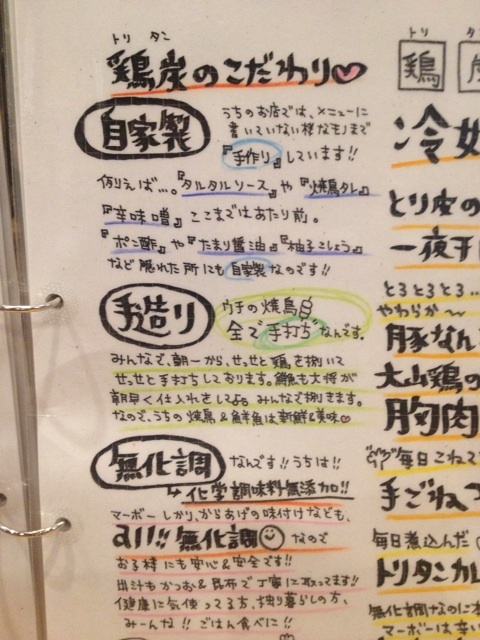 トリ タン
鶏炭のこだわり
自家製
うちのお店では、メニューに
書いていない様なモノまで
『手作り』しています!!
例えば…。『タルタルソース』や『焼鳥タレ』
『辛味噌』ここまではあたり前。
『ポン酢』や『たまり醤油』『柚子こしょう』
など隠れた所にも自家製なのです!!
手造り
ウチの焼鳥
全て手打ちなんです。
みんなで、朝一から、せっせと鶏を捌いて
せっせと手打ちしております。鮮魚も大将が
朝早く仕入れをしてよる みんなで捌きます。
なので、うちの焼鳥&鮮魚は新鮮&美味
無化調
なんです!!うちは!!
化学調味料無添加!!
マーボー しかり、からあげの味付けなども、
all!!無化調 なので
お子様にも安心&安全です!!
出汁もかつお&昆布で丁寧に取ってます!!
健康に気使ってる方、独り暮らしの方、
みーんな!!ごはん食べに!!
トリ
鶏
冷
とり皮の
一夜干
とろとろとろ…
やわらか〜
豚なん
大山鶏の
胸肉
毎日こねて
手ごねつ
毎日煮込んだ
トリタンカレ
無化調なのに本
マーボーは辛い